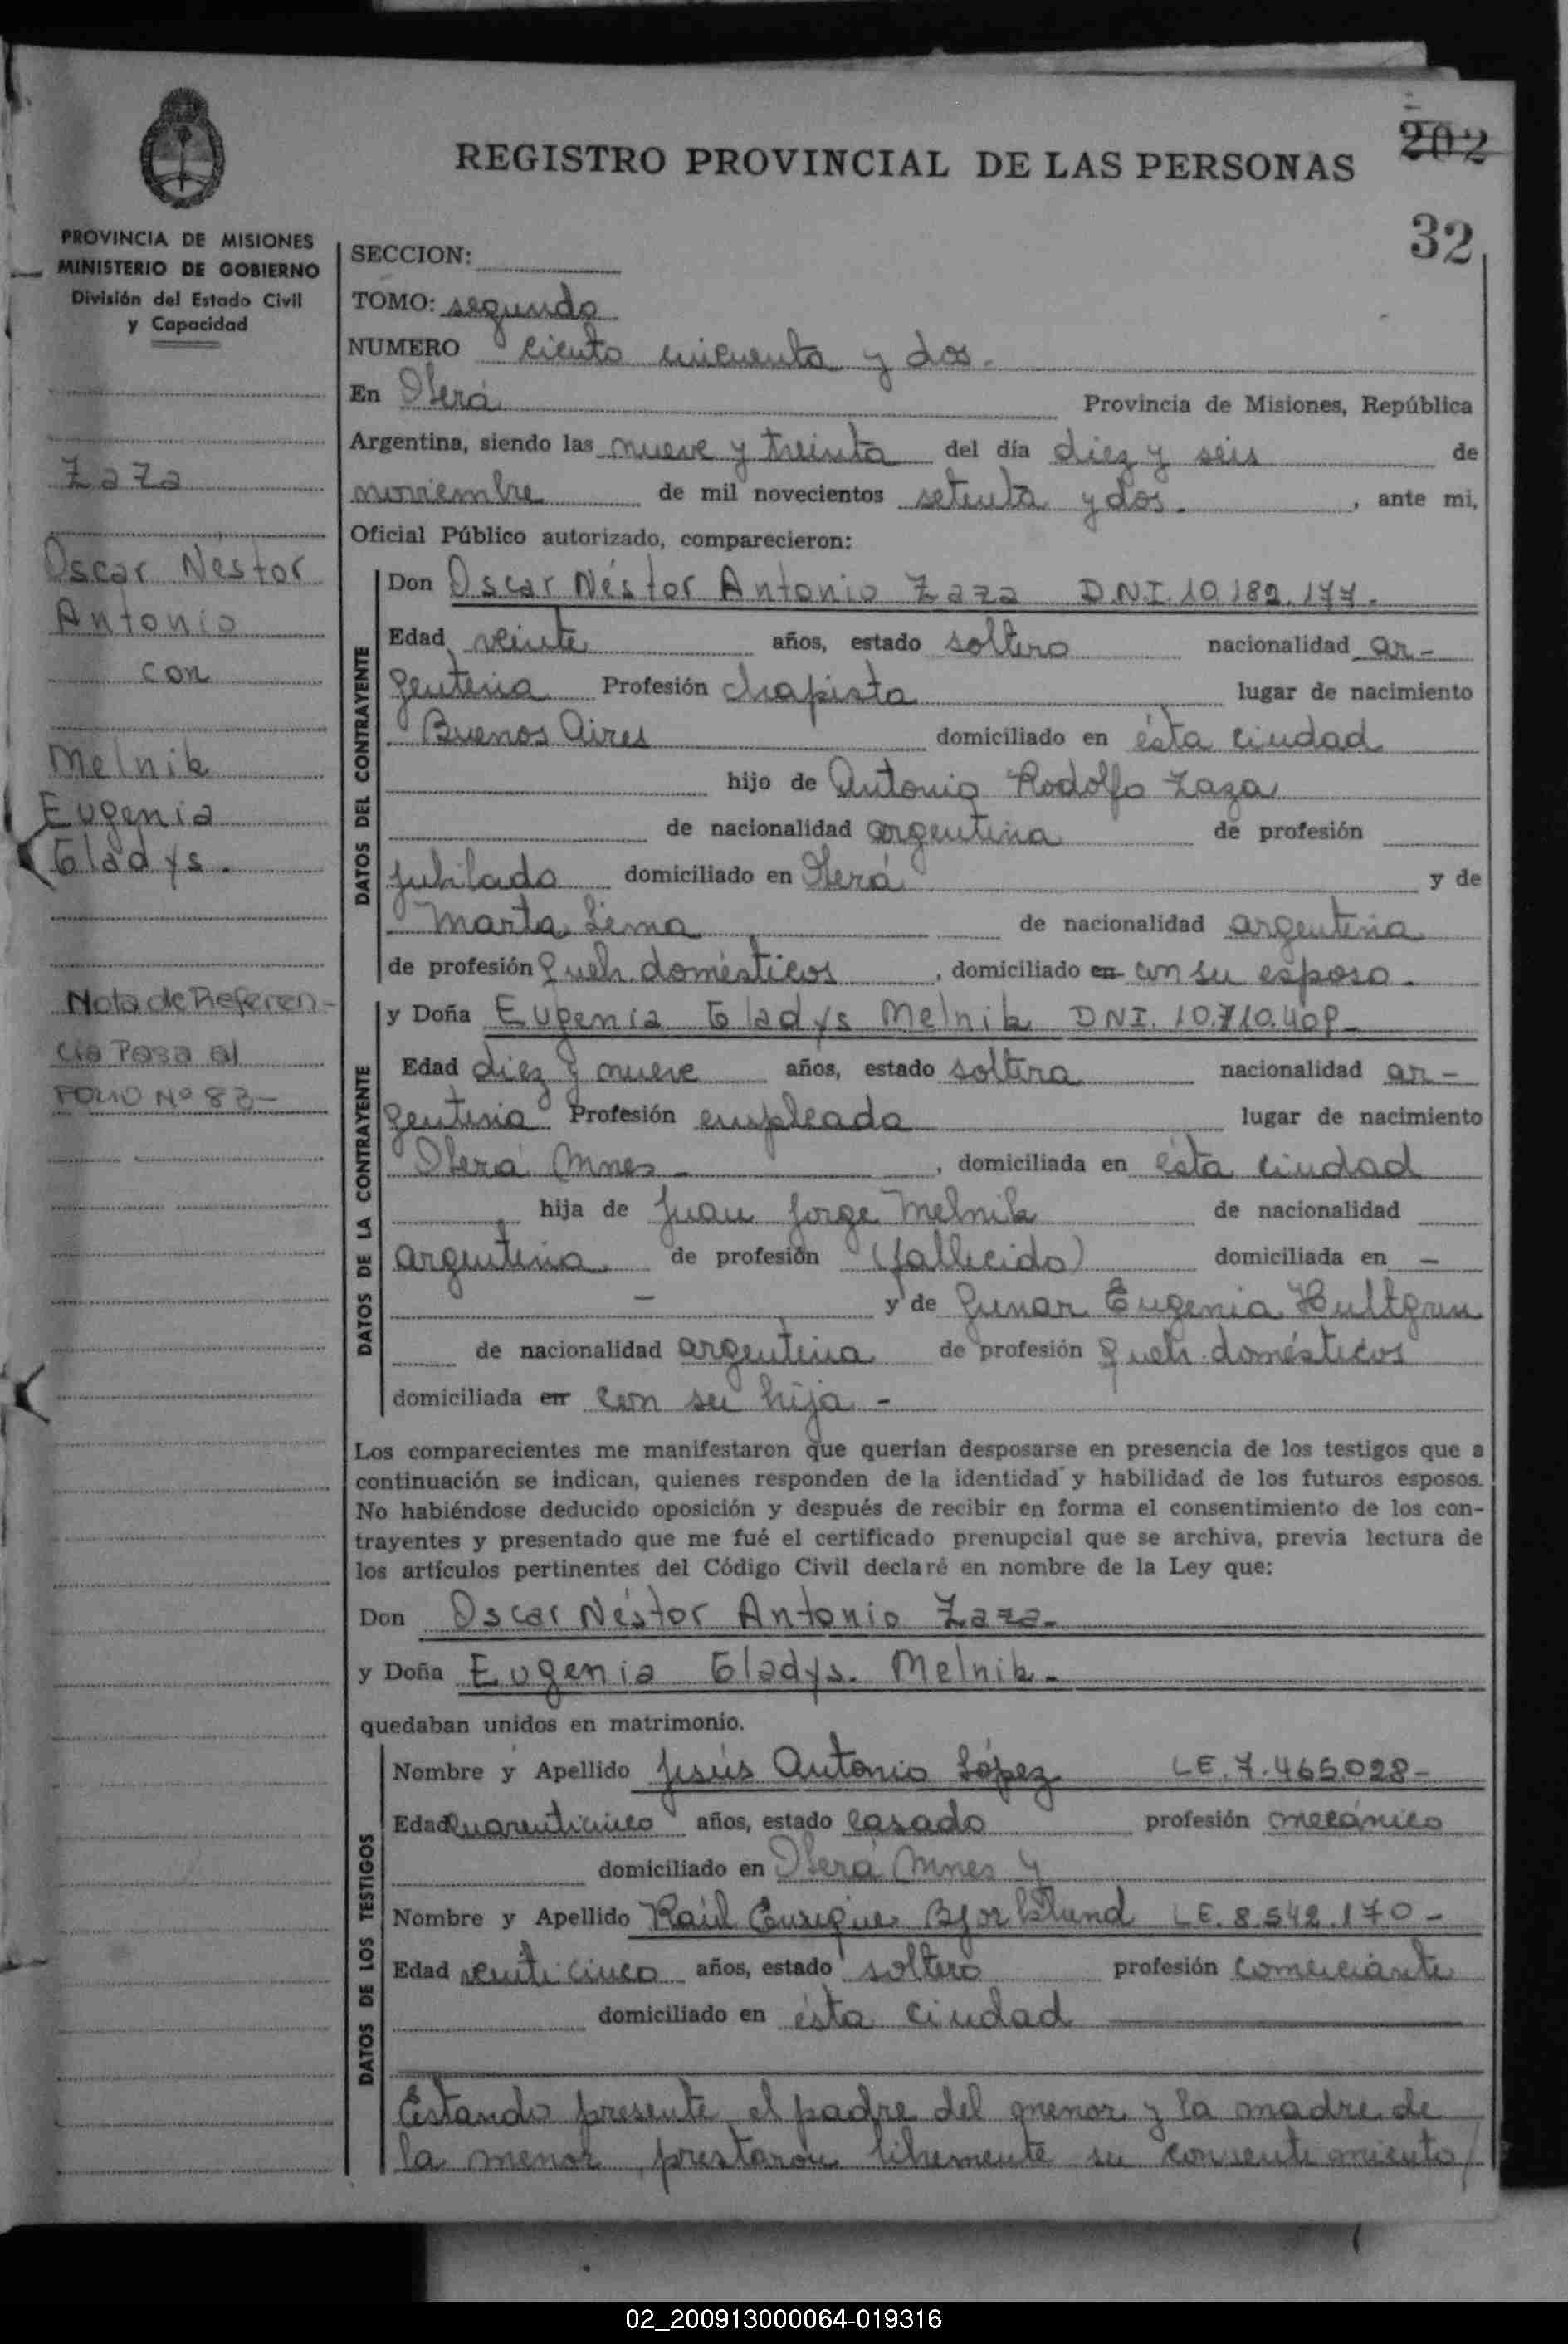 202
REGISTRO PROVINCIAL DE LAS PERSONAS
32
PROVINCIA DE MISIONES
MINISTERIO DE GOBIERNO
División del Estado Civil
y Capacidad
Zaza
Oscar Nestor
Antonio
con
Melnik
Eugenia
Gladys.
Nota de Referen-
cia Pasa al
FOLIO Nº 83-
SECCION:
TOMO: segundo
NUMERO ciento cincuenta y dos.
En Oberá Provincia de Misiones, República
Argentina, siendo las nueve y treinta del día diez y seis de
noviembre de mil novecientos setenta y dos. , ante mi,
Oficial Público autorizado, comparecieron:
DATOS DEL CONTRAYENTE
Don Oscar Néstor Antonio Zaza DNI.10.182.177.
Edad veinte años, estado soltero nacionalidad ar-
gentina Profesión chapista lugar de nacimiento
Buenos Aires domiciliado en ésta ciudad
hijo de Antonio Rodolfo Zaza
de nacionalidad argentina de profesión
jubilado domiciliado en Oberá y de
Marta de nacionalidad argentina
de profesión Queh. domésticos , domiciliado en con su esposo.
DATOS DE LA CONTRAYENTE
y Doña Eugenia Gladys Melnik DNI. 10.710.409-
Edad diez y nueve años, estado soltera nacionalidad ar-
gentina Profesión empleada lugar de nacimiento
Oberá Mnes- , domiciliada en ésta ciudad
hija de Juan Jorge Melnik de nacionalidad
argentina de profesión (fallecido) domiciliada en -
- y de Gunar Eugenia Hultgren
de nacionalidad argentina de profesión Queh. domésticos
domiciliada en con su hija -
Los comparecientes me manifestaron que querían desposarse en presencia de los testigos que a
continuación se indican, quienes responden de la identidad y habilidad de los futuros esposos.
No habiéndose deducido oposición y después de recibir en forma el consentimiento de los con-
trayentes y presentado que me fué el certificado prenupcial que se archiva, previa lectura de
los artículos pertinentes del Código Civil declaré en nombre de la Ley que:
Don Oscar Néstor Antonio Zaza-
y Doña Eugenia Gladys. Melnik-
quedaban unidos en matrimonio.
DATOS DE LOS TESTIGOS
Nombre y Apellido Jesús Antonio López LE.7.465.028-
Edad cuarenticinco años, estado casado profesión mecánico
domiciliado en Oberá Mnes y
Nombre y Apellido Raúl Enrique Bjorklund LE.8.542.170-
Edad veinticinco años, estado soltero profesión comerciante
domiciliado en ésta ciudad
Estando presente el padre del menor y la madre de
la menor prestaron libremente su consentimiento/
02_200913000064-019316